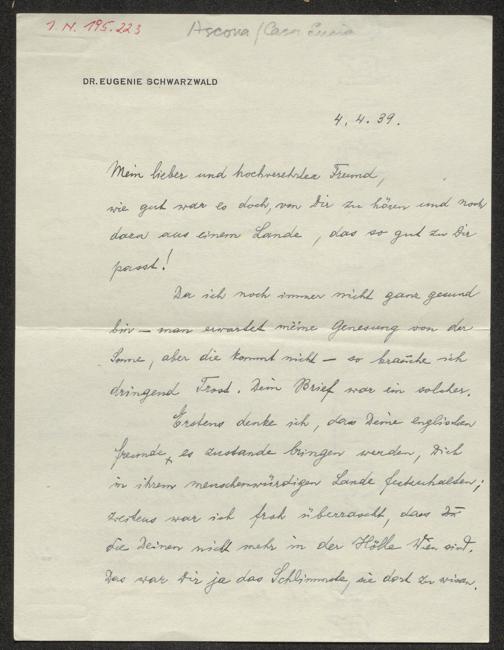 I. N. 195.223
Ascona / Casa Lucia
DR. EUGENIE SCHWARZWALD
4. 4. 39.
Mein lieber und hochverehrter Freund,
wie gut war es doch, von Dir zu hören und noch
dazu aus einem Lande, das so gut zu Dir
passt!
Da ich noch immer nicht ganz gesund
bin — man erwartet meine Genesung von der
Sonne, aber die kommt nicht — so brauche ich
dringend Trost. Dein Brief war ein solcher.
Erstens denke ich, dass Deine englischen
Freunde, es zustande bringen werden, Dich
in ihrem menschenwürdigen Lande festzuhalten;
zweitens war ich froh überrascht, dass
die Deinen nicht mehr in der Hölle Wien sind.
Das war Dir ja das Schlimmste, sie dort zu wissen.